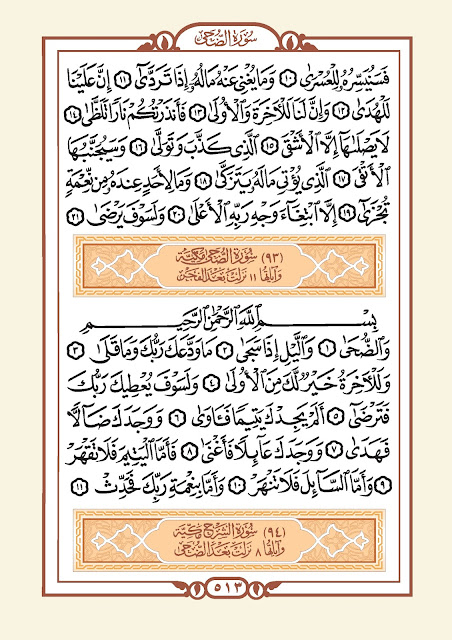 سُورَةُ الضُّحَى
فَسَنُيَسِّرُهُ لِلْعُسْرَىٰ ١٠ وَمَا يُغْنِي عَنْهُ مَالُهُ إِذَا تَرَدَّىٰٓ ١١ إِنَّ عَلَيْنَا
لَلْهُدَىٰ ١٢ وَإِنَّ لَنَا لَلْآخِرَةَ وَالْأُولَىٰ ١٣ فَأَنذَرْتُكُمْ نَارًا تَلَظَّىٰ ١٤
لَا يَصْلَىٰهَآ إِلَّا الْأَشْقَى ١٥ الَّذِي كَذَّبَ وَتَوَلَّىٰ ١٦ وَسَيُجَنَّبُهَا
الْأَتْقَى ١٧ الَّذِي يُؤْتِي مَالَهُ يَتَزَكَّىٰ ١٨ وَمَا لِأَحَدٍ عِندَهُ مِن نِّعْمَةٍ
تُجْزَىٰٓ ١٩ إِلَّا ابْتِغَآءَ وَجْهِ رَبِّهِ الْأَعْلَىٰ ٢٠ وَلَسَوْفَ يَرْضَىٰ ٢١
(٩٣) سُورَةُ الضُّحَى مَكِّيَّة
وَآيَاتُهَا ١١ نَزَلَتْ بَعْدَ الفَجْرِ
بِسْمِ اللَّهِ الرَّحْمَٰنِ الرَّحِيمِ
وَالضُّحَىٰ ١ وَالَّيْلِ إِذَا سَجَىٰ ٢ مَا وَدَّعَكَ رَبُّكَ وَمَا قَلَىٰ ٣
وَلَلْآخِرَةُ خَيْرٌ لَّكَ مِنَ الْأُولَىٰ ٤ وَلَسَوْفَ يُعْطِيكَ رَبُّكَ
فَتَرْضَىٰٓ ٥ أَلَمْ يَجِدْكَ يَتِيمًا فَـَٔاوَىٰ ٦ وَوَجَدَكَ ضَآلًّا
فَهَدَىٰ ٧ وَوَجَدَكَ عَآئِلًا فَأَغْنَىٰ ٨ فَأَمَّا الْيَتِيمَ فَلَا تَقْهَرْ
٩ وَأَمَّا السَّآئِلَ فَلَا تَنْهَرْ ١٠ وَأَمَّا بِنِعْمَةِ رَبِّكَ فَحَدِّثْ ١١
(٩٤) سُورَةُ الشَّرْحِ مَكِّيَّة
وَآيَاتُهَا ٨ نَزَلَتْ بَعْدَ الضُّحَى
٥١٣